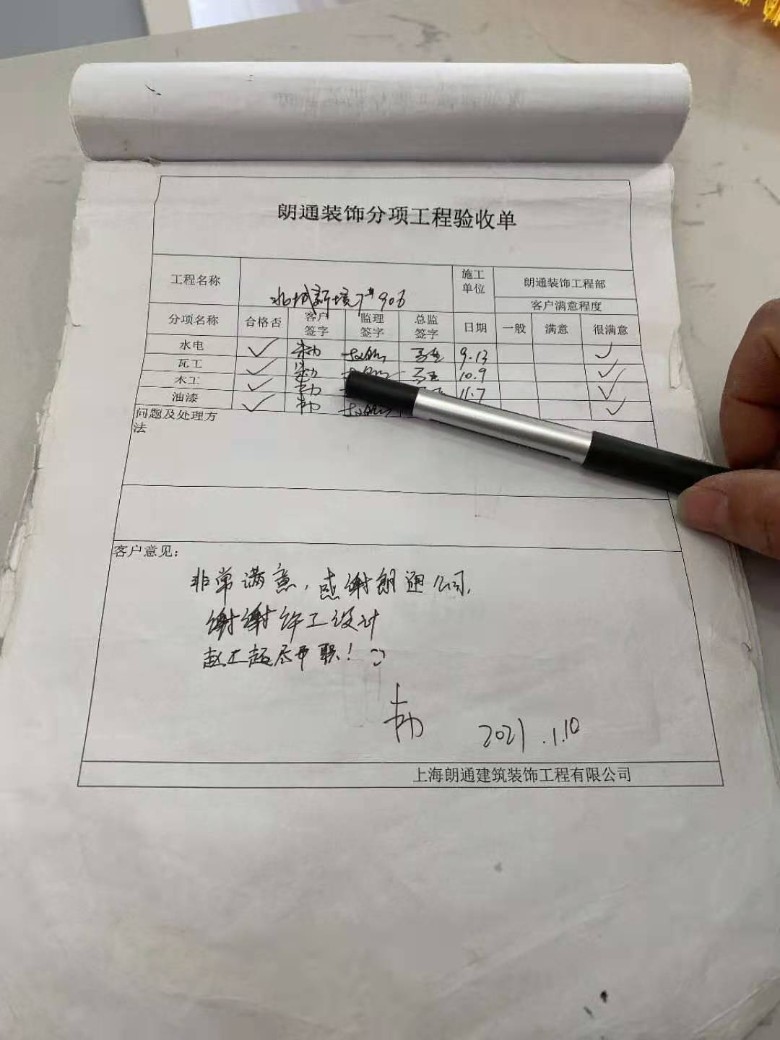 朗通装饰分项工程验收单
工程名称 水城新境7#906 施工单位 朗通装饰工程部
客户满意程度
分项名称 合格否 客户签字 监理签字 总监签字 日期 一般 满意 很满意
水电 ✓ 9.13 ✓
瓦工 ✓ 10.9 ✓
木工 ✓ 11.7 ✓
油漆 ✓ ✓
问题及处理方法
客户意见:
非常满意,感谢朗通公司,
谢谢许工设计
赵工超尽职!
2021.1.10
上海朗通建筑装饰工程有限公司